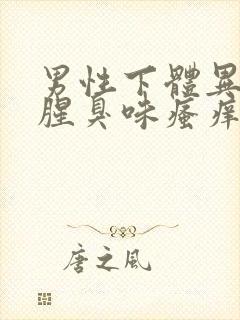 男性下體異
腥臭味瘙癢
唐之風